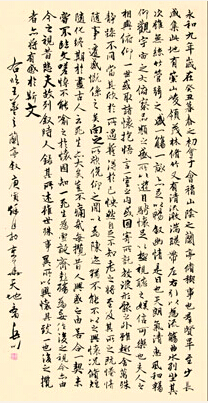 永和九年歲在癸丑暮春之初會于會稽山陰之蘭亭脩禊事也群賢畢至少長
咸集此地有崇山峻領茂林脩竹又有清流激湍暎帶左右引以為流觴曲水列坐其
次雖無絲竹管弦之盛一觴一詠亦足以暢敘幽情是日也天朗氣清惠風和暢
仰觀宇宙之大俯察品類之盛所以遊目騁懷足以極視聽之娛信可樂也夫人之
相與俯仰一世或取諸懷抱悟言一室之內或因寄所託放浪形骸之外雖趣舍萬殊
靜躁不同當其欣於所遇暫得於己快然自足不知老之將至及其所之既惓情
隨事遷感慨係之矣向之所欣俛仰之間以為陳迹猶不能不以之興懷況脩短
隨化終期於盡古人云死生亦大矣豈不痛哉每攬昔人興感之由若合一契未
嘗不臨文嗟悼不能喻之於懷固知一死生為虛誕齊彭殤為妄作後之視今亦由
今之視昔悲夫故列敘時人錄其所述雖世殊事異所以興懷其致一也後之攬
者亦將有感於斯文
王羲之蘭亭敘庚寅